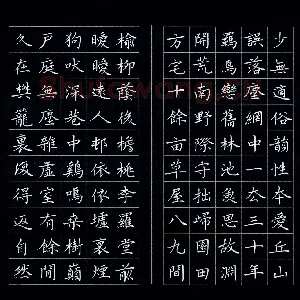 少無適俗韻性本愛丘山
誤落塵網中一去三十年
羈鳥戀舊林池魚思故淵
開荒南野際守拙歸園田
方宅十餘亩草屋八九間
榆柳蔭後檐桃李羅堂前
曖曖遠人邨依依墟裏煙
狗吠深巷中雞鳴桒樹巔
戶庭無塵雜虛室有餘閒
久在樊籠裏復得返自然